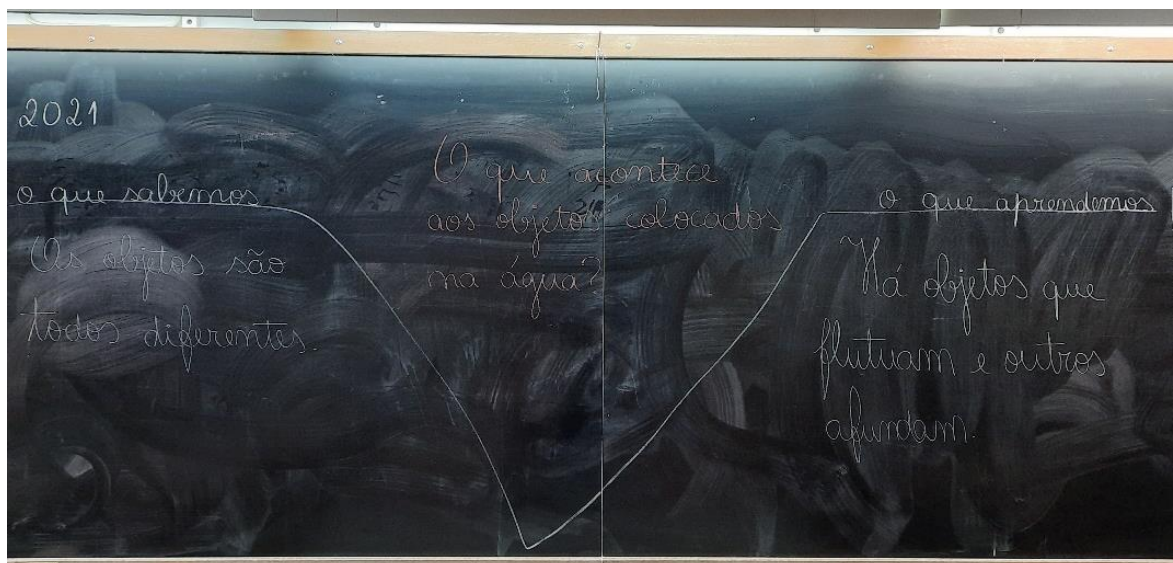 2021
o que sabemos
Os objetos são
todos diferentes.
O que acontece
aos objetos colocados
na água?
o que aprendemos
Há objetos que
flutuam e outros
afundam.